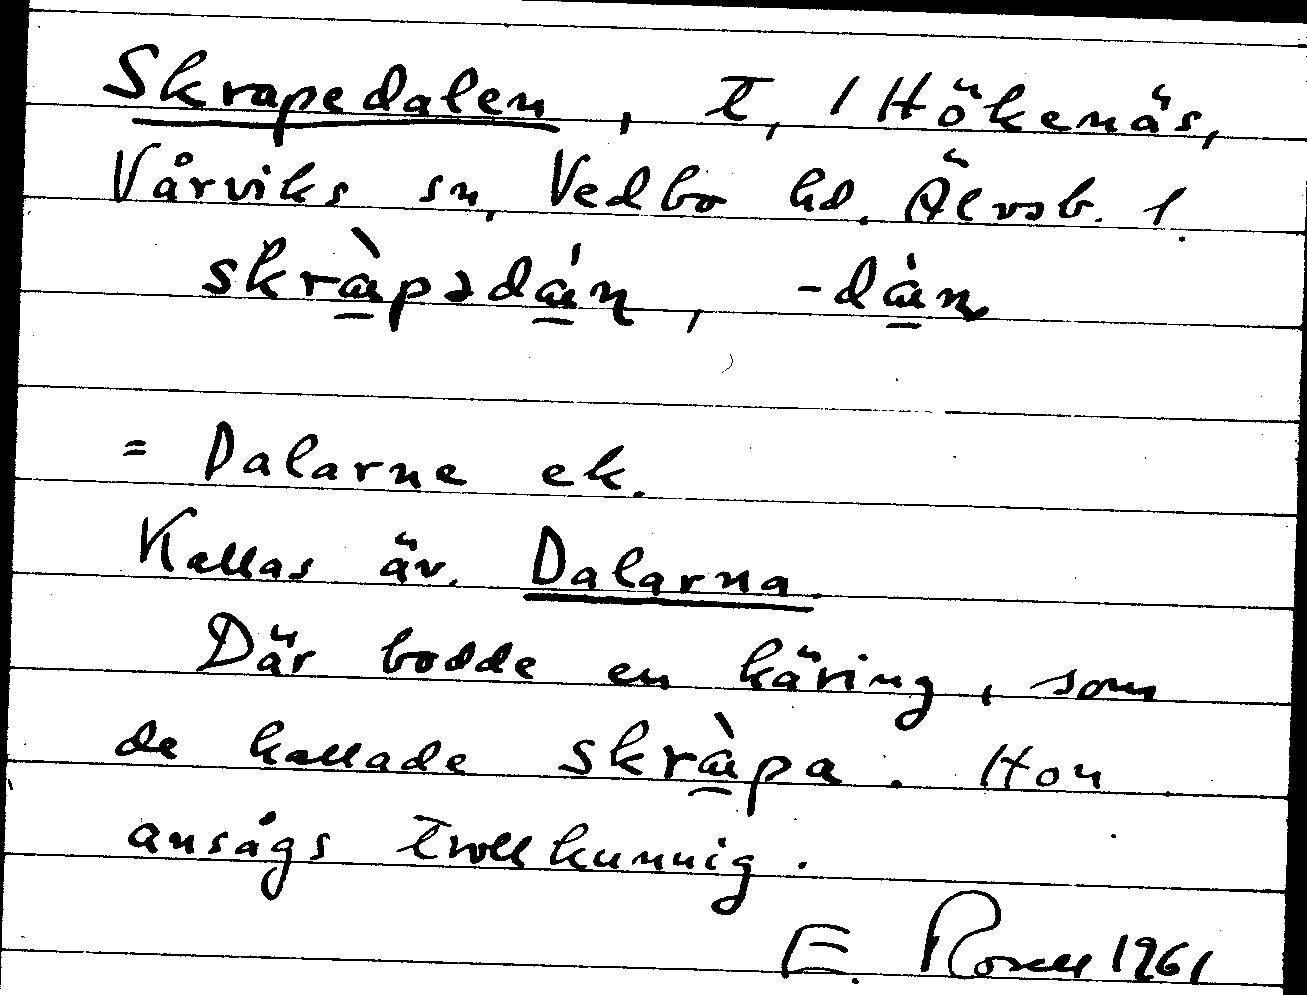 Skrapedalen, t, 1 Hökenäs,
Vårviks sn, Vedbo hd. Älvsb. l.
skràpədán, -dàn
= Dalarne ek.
Kallas äv. Dalarna.
Där bodde en käring, som
de kallade skràpa. Hon
ansågs trollkunnig.
E. Rosell 1961